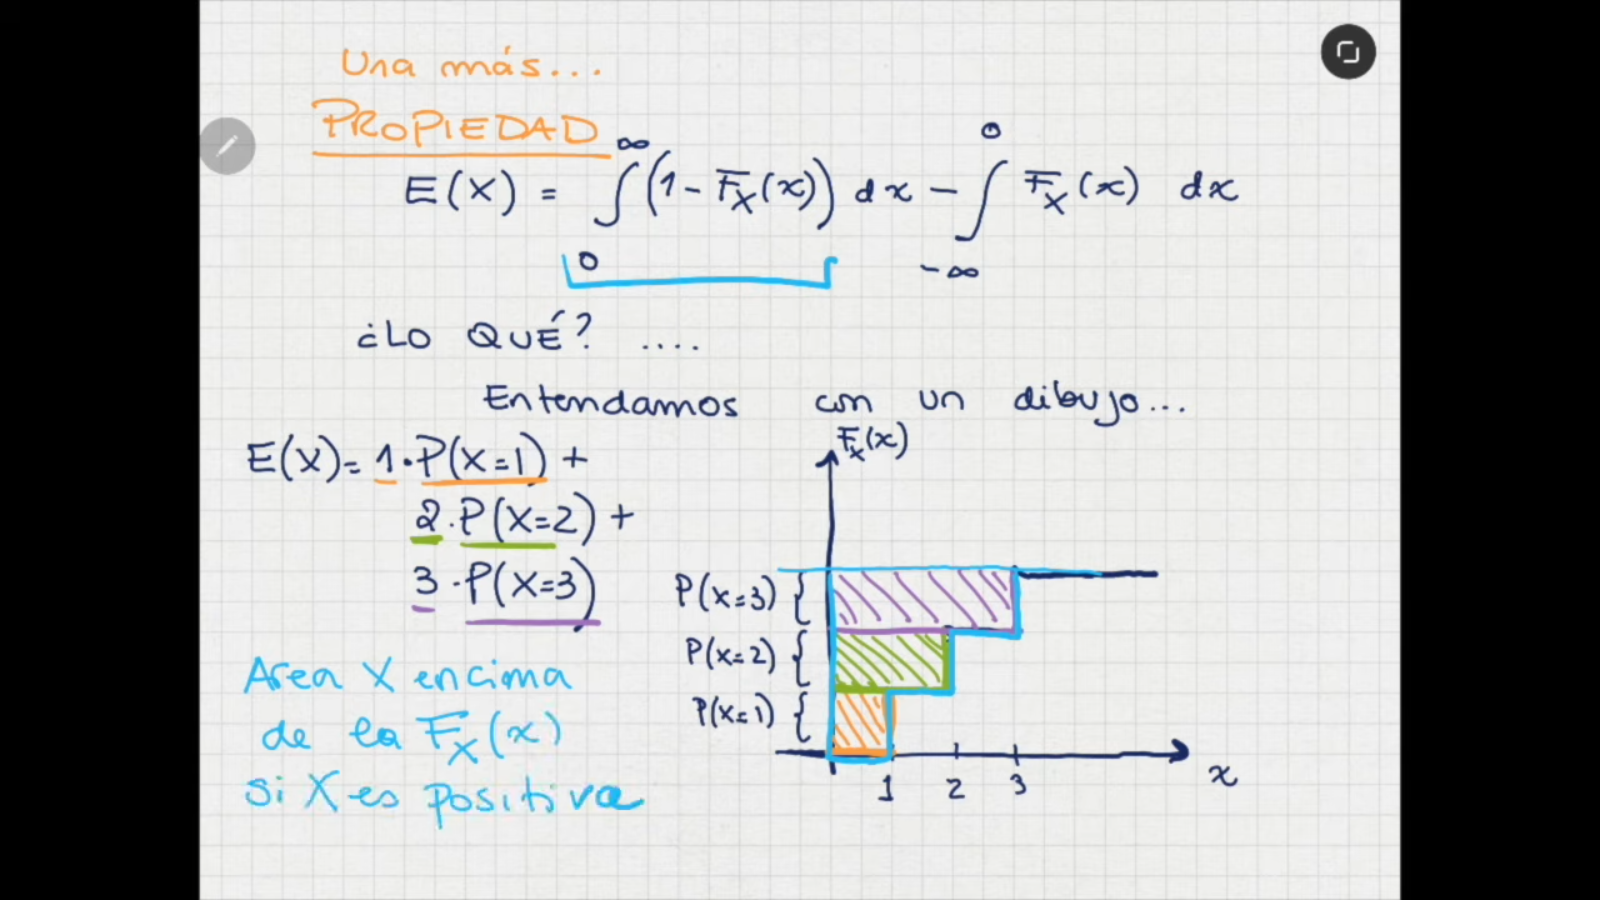 Una más...
PROPIEDAD
E(X) = ∫₀^∞ (1 - F_X(x)) dx - ∫_{-∞}^0 F_X(x) dx
¿LO QUÉ? ....
Entendamos con un dibujo...
E(X) = 1·P(X=1) +
2·P(X=2) +
3·P(X=3)
Area X encima
de la F_X(x)
si X es positiva
F_X(x)
P(X=3) {
P(X=2) {
P(X=1) {
1 2 3
x